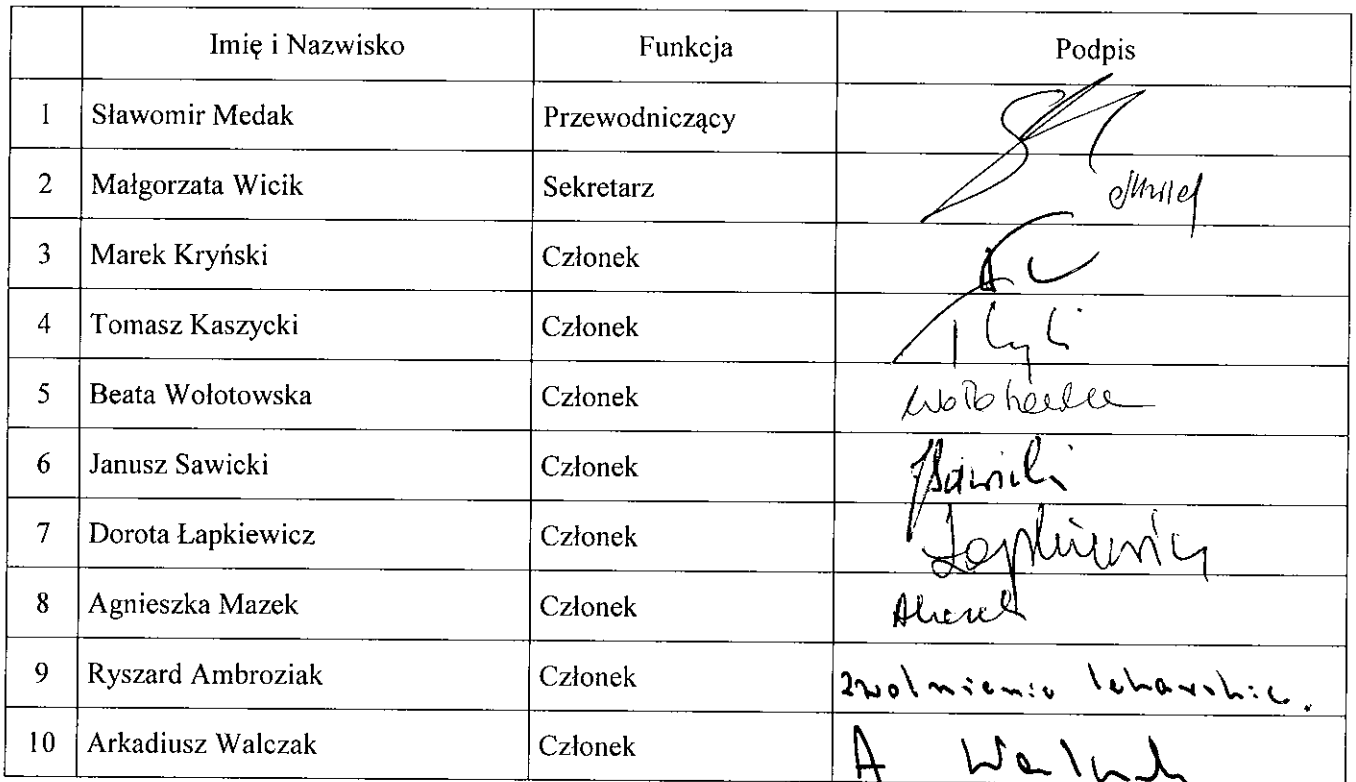 Imię i Nazwisko Funkcja Podpis
1 Sławomir Medak Przewodniczący
2 Małgorzata Wicik Sekretarz
3 Marek Kryński Członek
4 Tomasz Kaszycki Członek
5 Beata Wołotowska Członek
6 Janusz Sawicki Członek JSawicki
7 Dorota Łapkiewicz Członek Łapkiewicz
8 Agnieszka Mazek Członek AMazek
9 Ryszard Ambroziak Członek zwolnienie lekarskie.
10 Arkadiusz Walczak Członek A Walczak